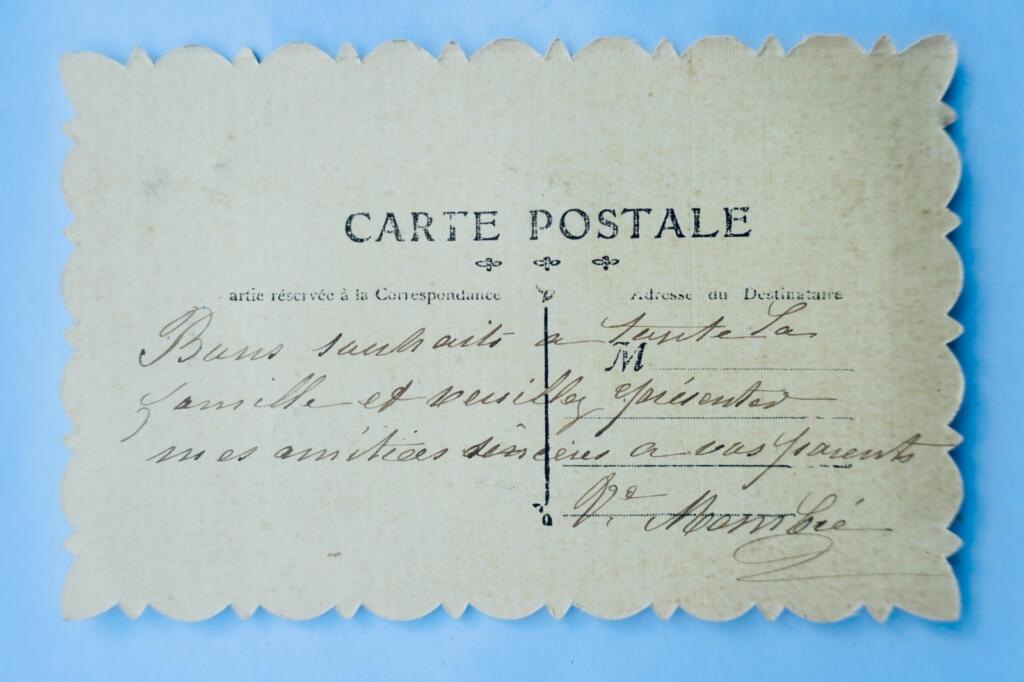 CARTE POSTALE
artie réservée à la Correspondance
Adresse du Destinataire
M
Bons souhaits a toute la
famille et veuillez présenter
mes amitiés sincères a vos parents
Ve